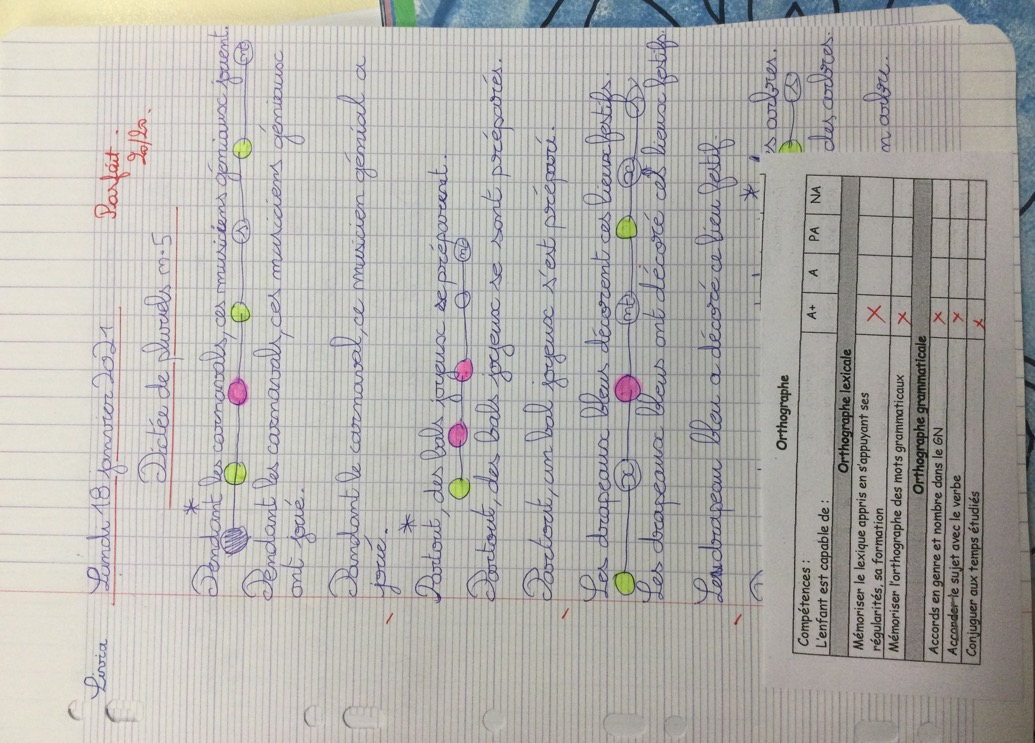 Livia
Lundi 18 janvier 2021
Parfait.
20/20.
Dictée de pluriels n°5
*
Pendant les carnavals, ces musiciens géniaux jouent.
s nt
Pendant les carnavals, ces musiciens géniaux
ont joué.
Pendant le carnaval, ce musicien génial a
joué.
*
Partout, des bals joyeux se préparent.
nt
Partout, des bals joyeux se sont préparés.
Partout, un bal joyeux s'est préparé.
Les drapeaux bleus décorent ces lieux festifs.
x nt x s
Les drapeaux bleus ont décoré ces lieux festifs.
Le drapeau bleu a décoré ce lieu festif.
*
s arbres.
s
des arbres.
n arbre.
Orthographe
Compétences :
L'enfant est capable de :
A+ A PA NA
Orthographe lexicale
Mémoriser le lexique appris en s'appuyant ses
régularités, sa formation X
Mémoriser l'orthographe des mots grammaticaux X
Orthographe grammaticale
Accords en genre et nombre dans le GN X
Accorder le sujet avec le verbe X
Conjuguer aux temps étudiés X